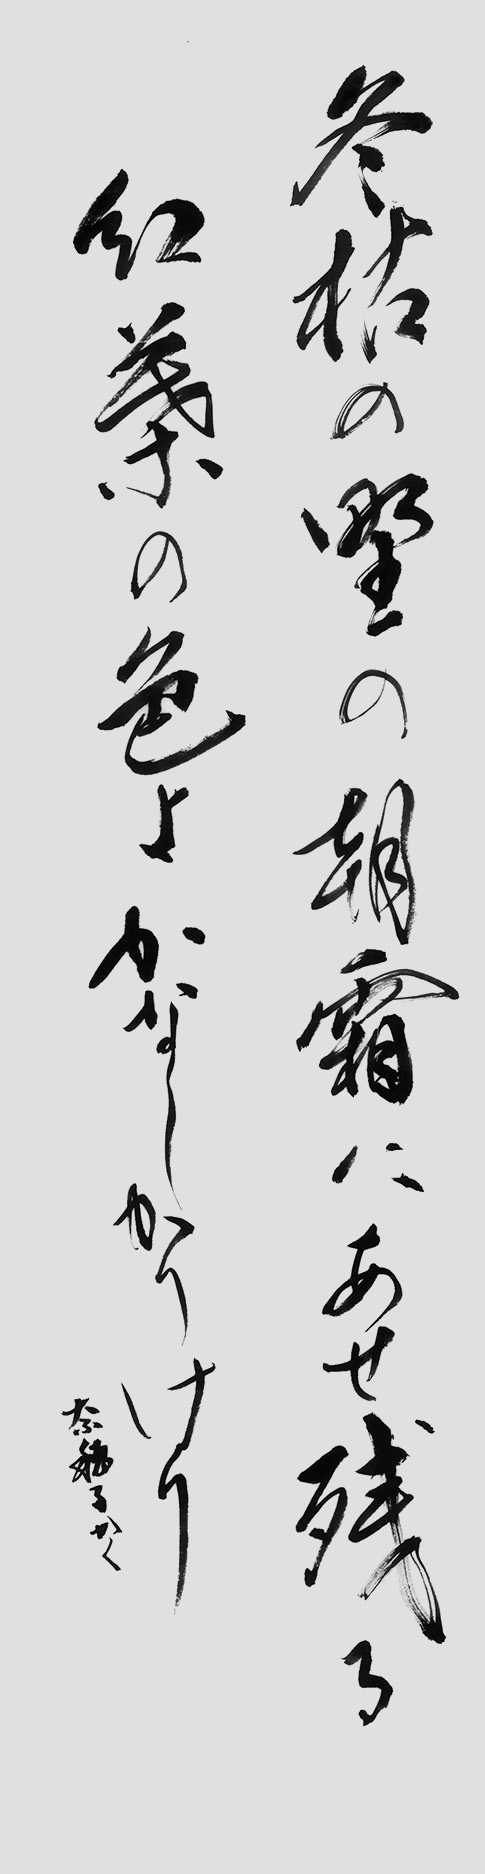 冬枯の野の朝霜にあせ残る
紅葉の色よかなしかりけり